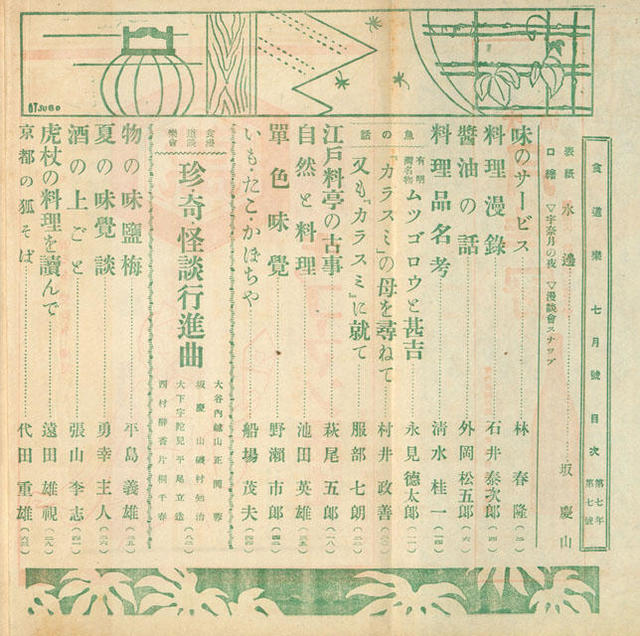 食道樂 七月號目次 第七年 第七號
表紙 水邊 坂慶山
口繪 ▽宇奈月の夜 ▽漫談會スナップ
味のサービス 林春隆(二)
料理漫錄 石井泰次郎(四)
醬油の話 外岡松五郎(六)
料理品名考 清水桂一
有明灣名物 ムツゴロウと甚吉 永見德太郎(一一)
魚の話
『カラスミ』の母を尋ねて 村井政善
又も『カラスミ』に就て 服部七朗
江戸料亭の古事 萩尾五郎(一八)
自然と料理 池田英雄
單色味覺 野瀬市郎
いも・たこ・かぼちや 船場茂夫
食道樂漫談會
珍・奇・怪談行進曲
大谷內越山 正岡蓉
坂慶山 磯村知治
大下宇陀兒 平尾立造
西村醉香 片桐千春
(八二)
物の味鹽梅 平島義雄(二五)
夏の味覺談 勇幸主人(二六)
酒の上ごと 張山李志(四一)
虎杖の料理を讀んで 遠田雄視(二九)
京都の狐そば 代田重雄(六三)